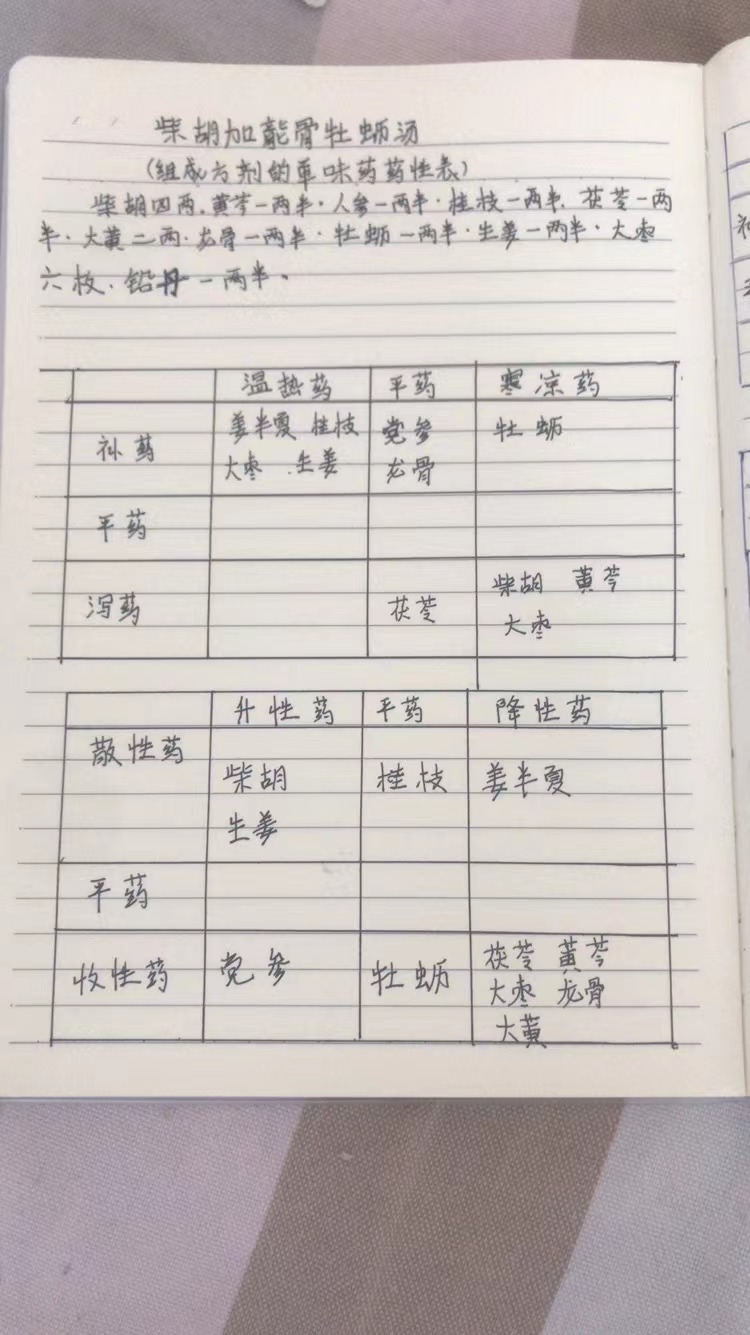 柴胡加龍骨牡蛎汤
(组成方剂的单味药药性表)
柴胡四两.黄芩一两半·人参一两半·桂枝一两半.茯苓一两
半·大黄二两·龙骨一两半·牡蛎一两半·生姜一两半·大枣
六枚.铅丹一两半。
温热药 平药 寒凉药
补药 姜半夏 桂枝 党参 牡蛎
大枣.生姜 龙骨
平药
泻药 茯苓 柴胡 黄芩
大枣
升性药 平药 降性药
散性药 柴胡 桂枝 姜半夏
生姜
平药
收性药 党参 牡蛎 茯苓 黄芩
大枣 龙骨
大黄